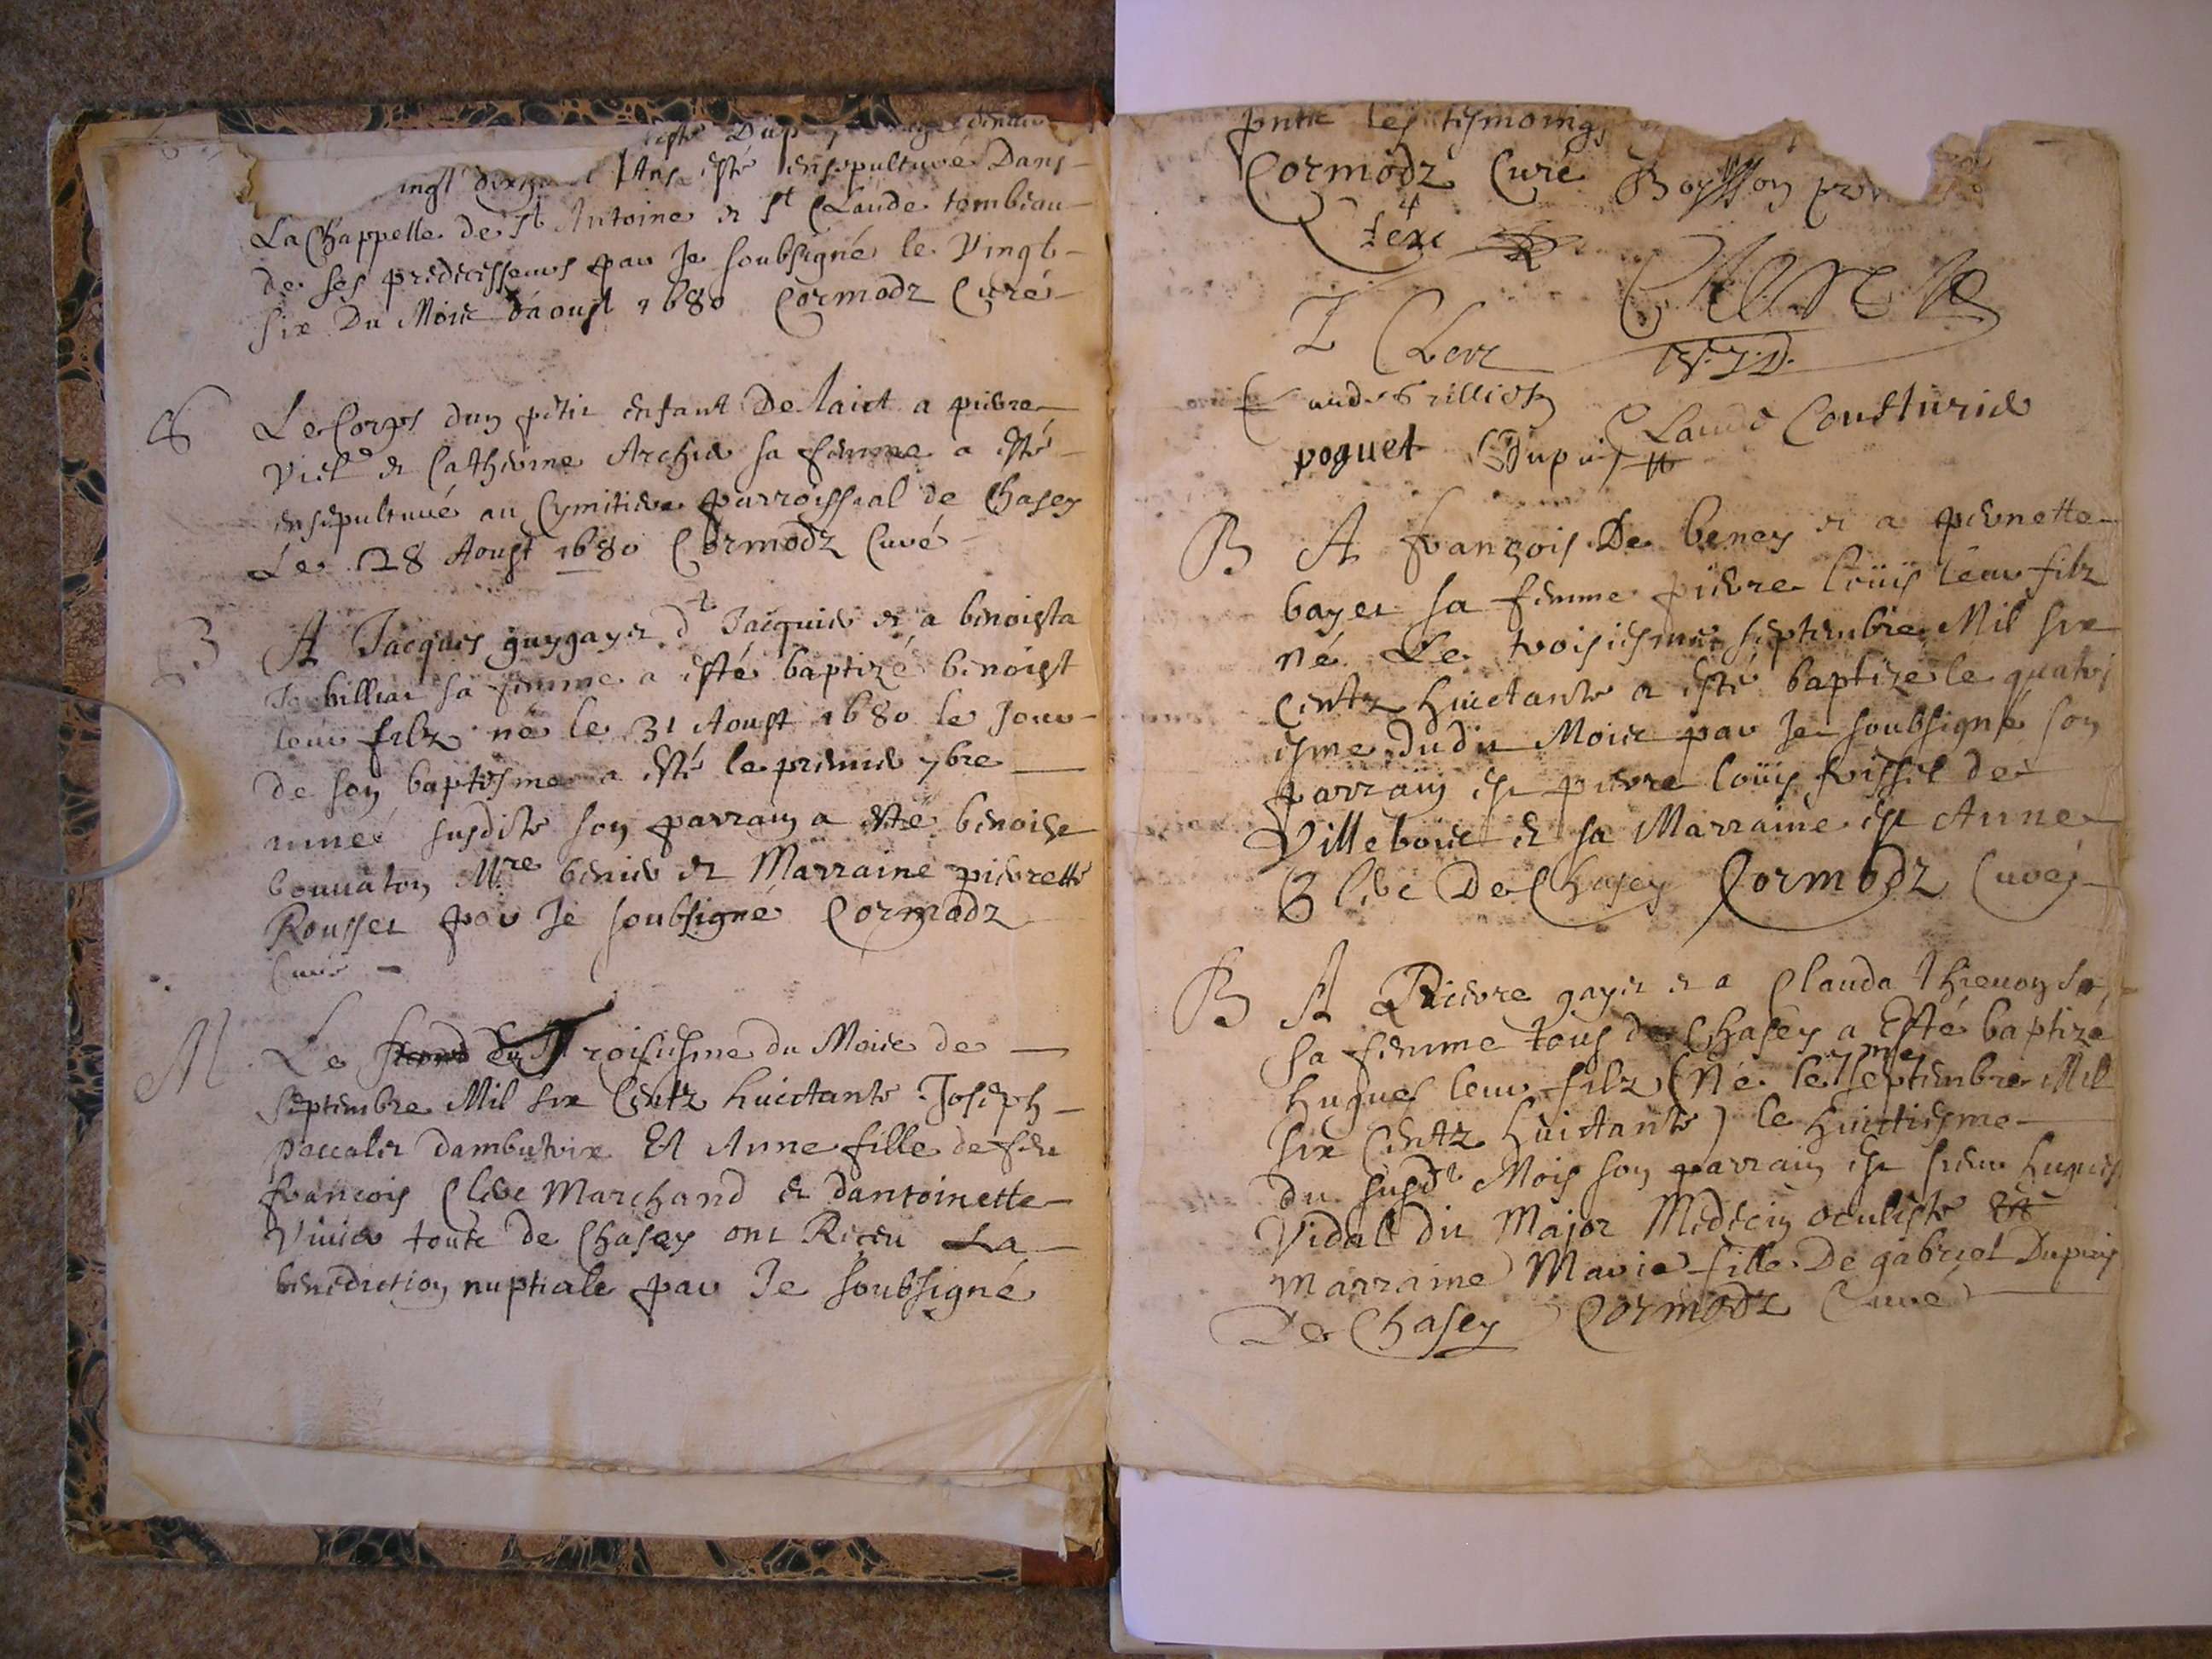 Ans a esté ensepulturé Dans
La Chappelle de St Antoine et St Claude tombeau
de ses predecesseurs par Je soubsigné le Vingt
six Du Moie d'aoust 1680 Cormodz Curé
S Le Corps dun petit enfant De laict a pierre
Viet et Catherine Archer sa femme a esté
ensepulturé au Cymitiere parroissial de Chasey
Le 28 Aoust 1680 Cormodz Curé
B A Jacques guygayet dt Jacquier et a benoista
billiat sa femme a esté baptizé benoist
leur filz né le 31 Aoust 1680 le Jour
de son baptesme a esté le premier 7bre
année susdite son parrain a esté benoist
Mre et Marraine pierrette
Rousset par Je soubsigné Cormodz
Curé
M Le Troisiesme du Moie de
Septembre Mil six Centz huictante Joseph
paccalet dambutrix Et Anne fille de feu
francois Clerc Marchand et dantoinette
touts de Chasey ont Receu La
benediction nuptiale par Je soubsigné
pntz les tesmoings
Cormodz Curé
Claude Cousturier
poguet Dupuis
B A françois De beney et a pernette
bayet sa femme pierre loüis leur filz
né Le troisiesme septembre Mil six
Centz huictante a esté baptize le quatri
esme dudit Moie par Je soubsigné son
parrain est pierre loüis de
Villeboie et sa Marraine est Anne
Clerc De Chasey Cormodz Curé
B A Pierre gayet et a Clauda thievon sa
sa femme tous de Chasey a Esté baptizé
hugues leur filz (Né le 7me septembre Mil
six Centz huictante) le huictiesme
du susdt Mois son parrain est sieur hugues
Vidal dit Major Medecin oculiste Et
marraine Marie fille De gabriel Dupuis
De Chasey Cormodz Curé